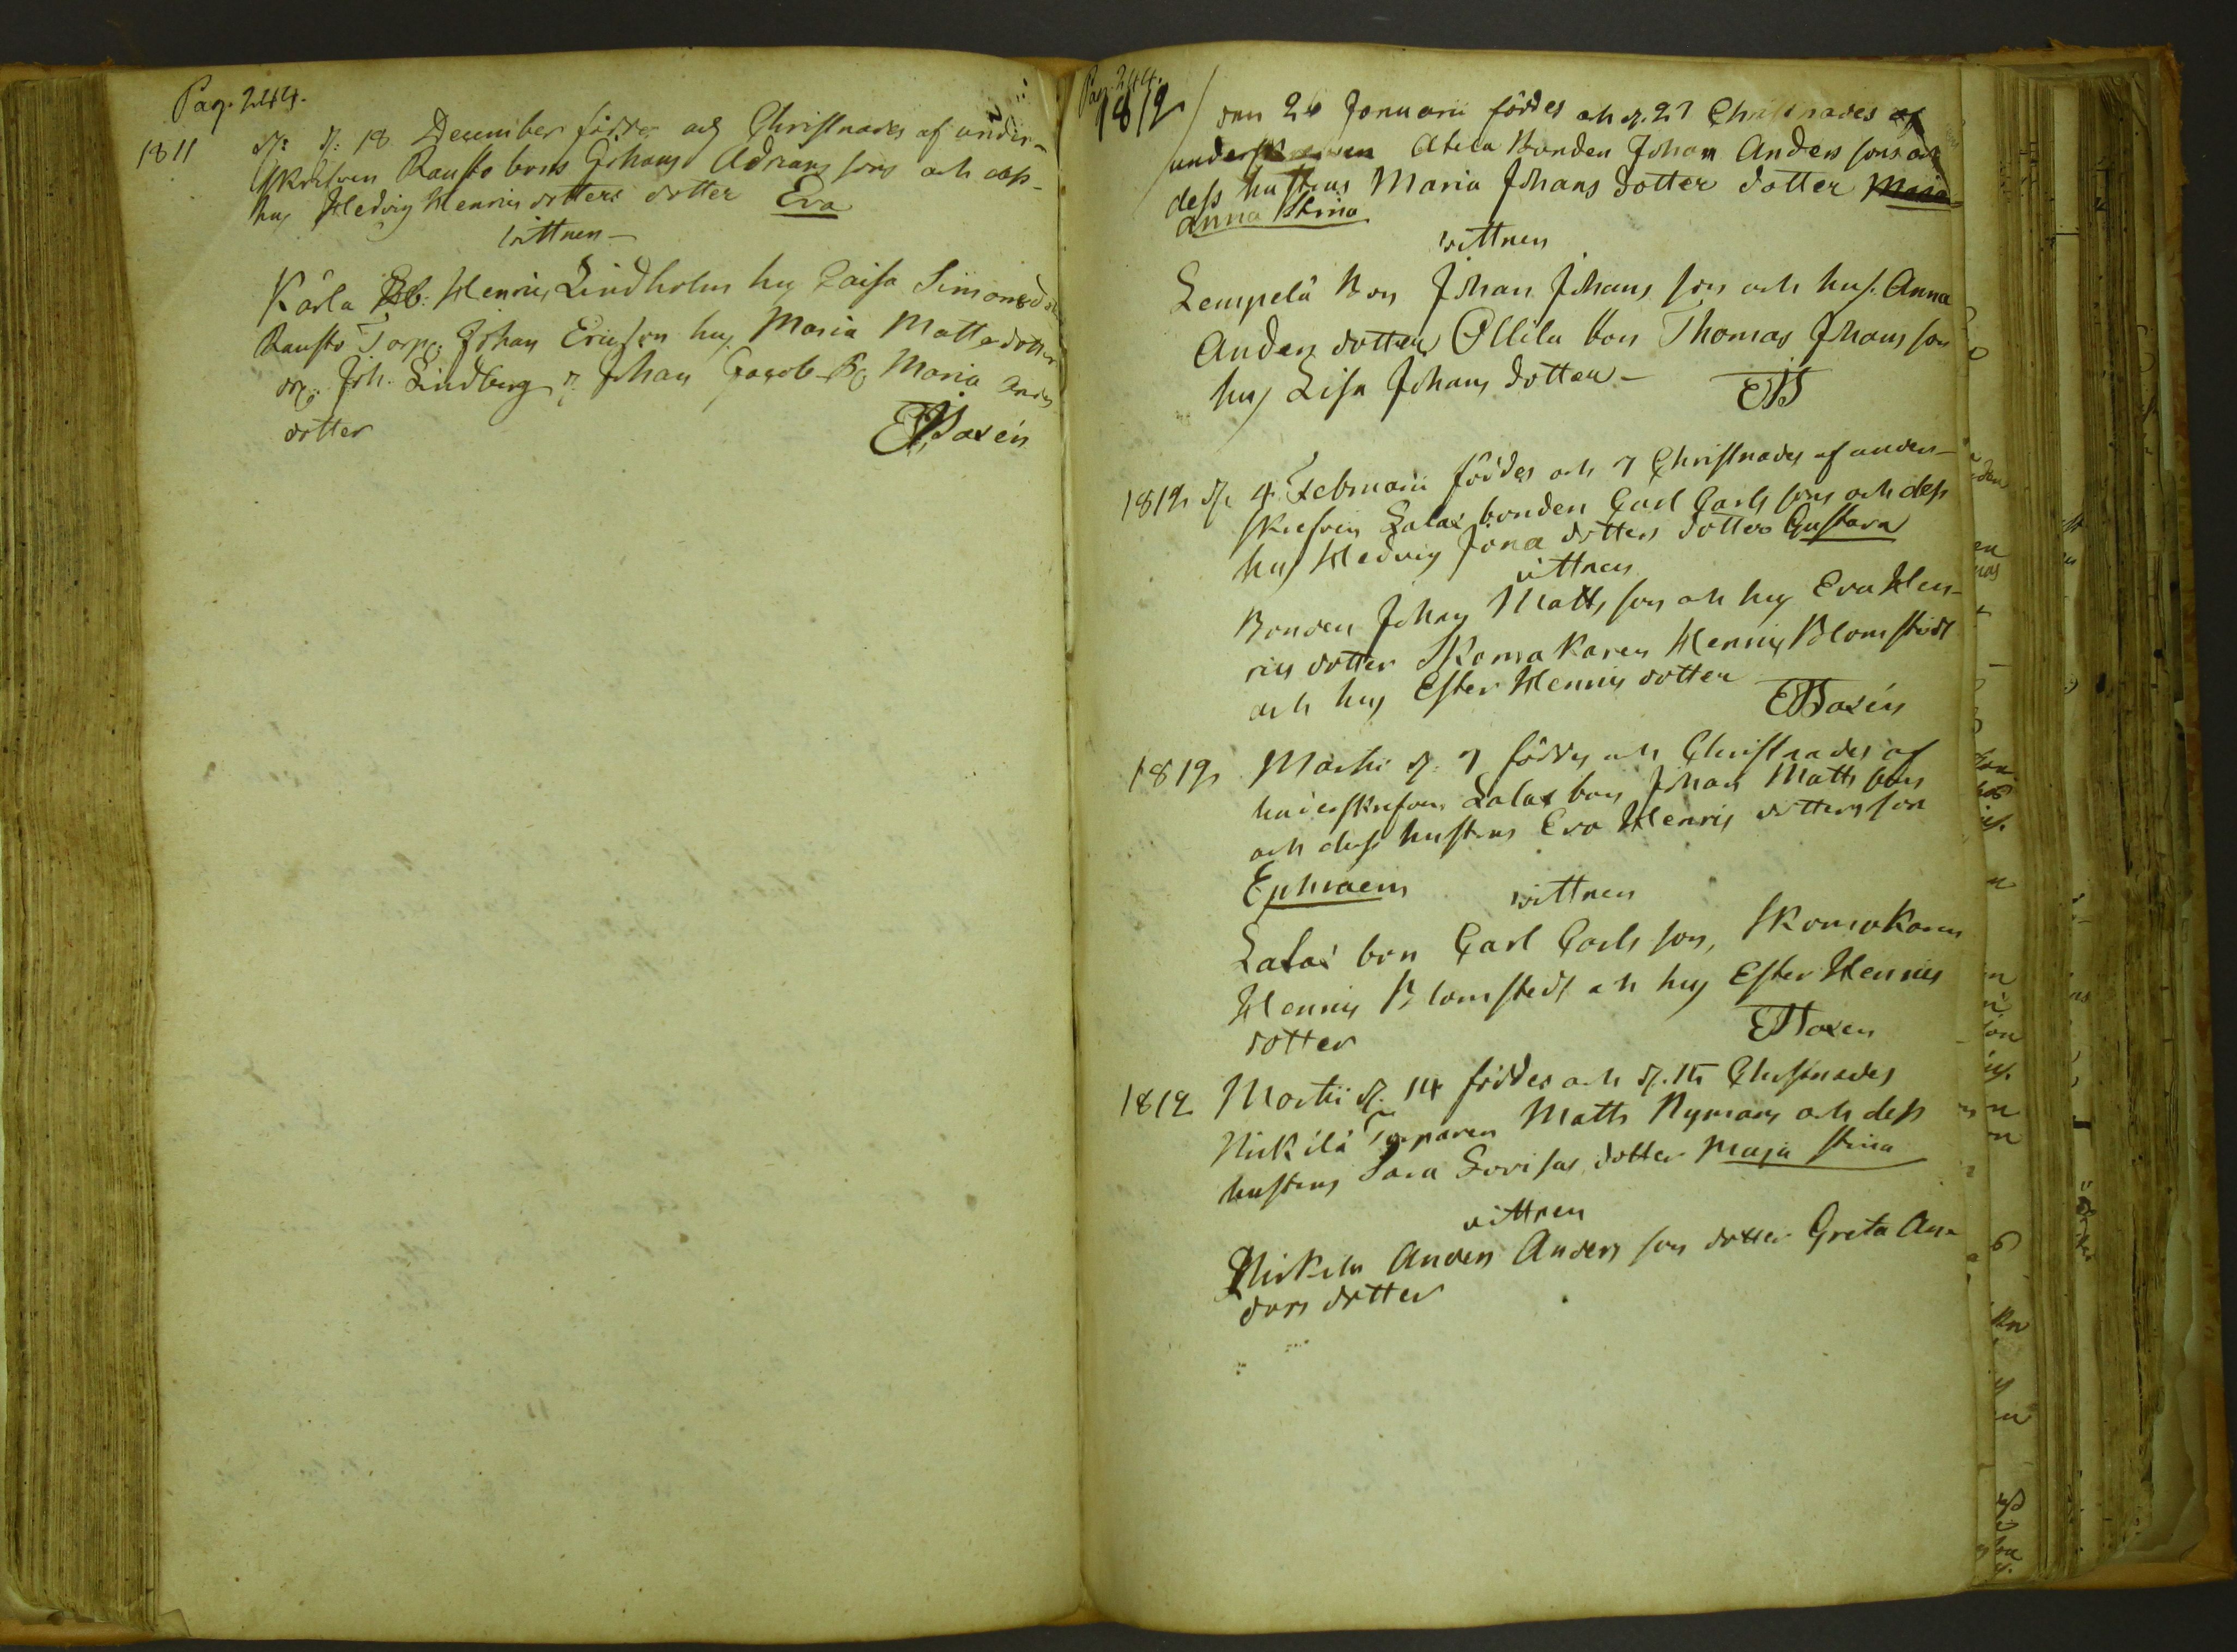 Pag. 244.
1811 d: 18 December föddes och Christnades af under-
skrefven Rausto bons Johans Adrians sons och dess
hus Hedvig Henrics dotters dotter Eva
wittnen
Karla Henric Lindholm hus Caisa Simonsd
Rausto Torp: Johan Ericson hus Maria Matts dotter
Joh. Lindberg Johan Jacob Maria Anders
dotter
Pag. 244.
1812 den 26 Januarii föddes och d. 27 Christnades af
underskrefven Bonden Johan Anders sons och
dess hustrus Maria Johans dotter dotter Maria
Anna Stina
wittnen
Lempelä Bon Johan Johans son och hus. Anna
Anders dotter Ollila bon Thomas Johans son
hus Lisa Johans dotter
1812 d. 4 Februarii föddes och 7 Christnades af under-
skrefven Salax bonden Carl Carls sons och dess
hus Hedvig Jona dotters dotter Gustava
vittnen
Bonden Johan Matts son och hus Eva Hen-
rics dotter Skomakaren Henric Blomstedt
och hus Ester Henrics dotter
1812 Martii d. 7 föddes och Christnades af
underskrefven Salax bons Johan Matts sons
och dess hustrus Eva Henrics dotters son
Ephraem wittnen
Salax bon Carl Carls son, Skomakaren
Henric Blomstedt och hus Ester Henrics
dotter
1812 Martii d. 14 föddes och d. 15 Christnades
Nirkilä Torparen Matts Nymans och dess
hustrus Sara Lovisas dotter Maja Stina
vittnen
Anders Anders son dotter Greta An-
ders dotter